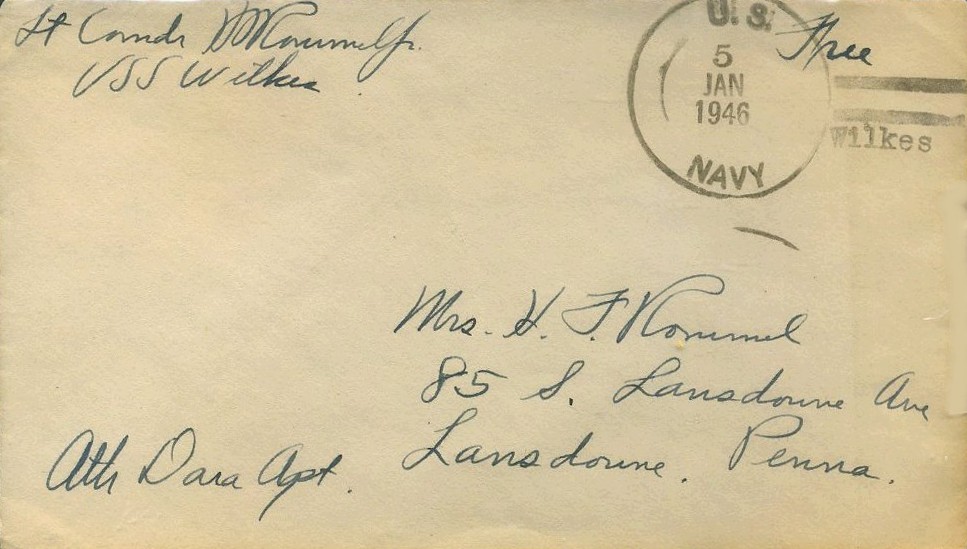 Lt Comdr H Rommel Jr.
USS Wilkes
U.S.
5
JAN
1946
NAVY
Free
Wilkes
Mrs. H. F. Rommel
85 S. Lansdowne Ave
Lansdowne. Penna.
Ath Dara Apt.